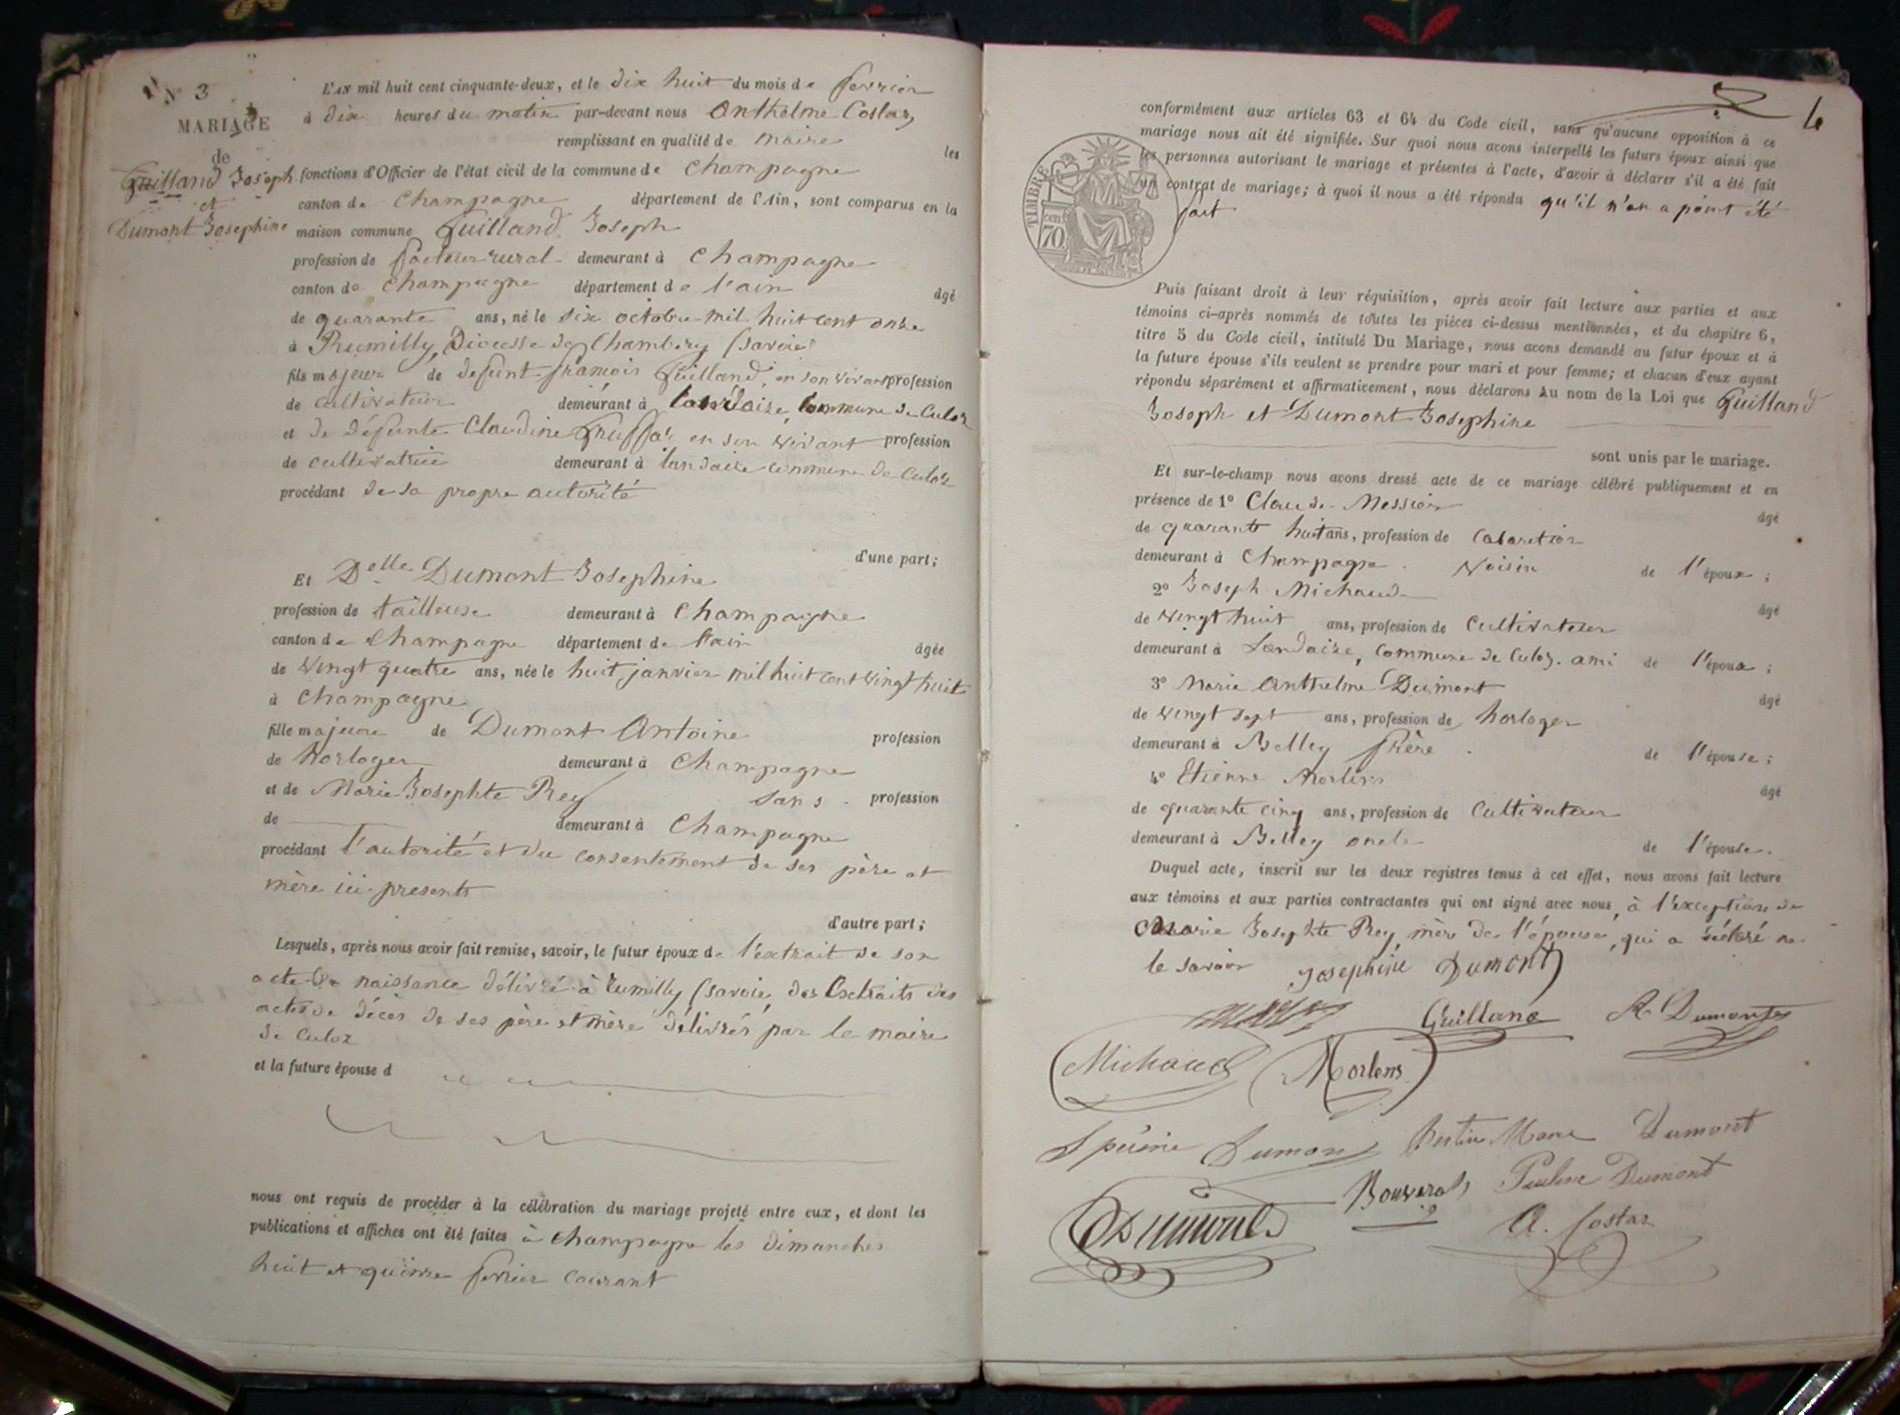 N° 3
MARIAGE
de
Guilland Joseph
et
Dumont Josephine
L'AN mil huit cent cinquante-deux, et le dix huit du mois de fevrier
à dix heures du matin par-devant nous Anthelme Costaz
remplissant en qualité de maire les
fonctions d'Officier de l'état civil de la commune de Champagne
canton de Champagne département de l'Ain, sont comparus en la
maison commune Guilland Joseph
profession de facteur rural demeurant à Champagne
canton de Champagne département de l'ain âgé
de quarante ans, né le six octobre mil huit cent onze
à Rumilly, Diocesse de Chambery (savoie)
fils majeur de défunt françois Guilland, en son vivant profession
de cultivateur demeurant à Landaize, Commune de Culoz
et de défunte Claudine en son vivant profession
de cultivatrice demeurant à landaize commune de Culoz
procédant de sa propre autorité
d'une part;
Et Delle Dumont Josephine
profession de tailleuse demeurant à Champagne
canton de Champagne département de l'ain âgée
de vingt quatre ans, née le huit janvier mil huit cent vingt huit
à Champagne
fille majeure de Dumont Antoine profession
de horloger demeurant à Champagne
et de Marie Josephte Rey sans profession
de demeurant à Champagne
procédant l'autorité et du consentement de ses père et
mère ici présents
d'autre part;
Lesquels, après nous avoir fait remise, savoir, le futur époux de l'extrait de son
acte de naissance délivré à Rumilly (savoie, des Extraits des
actes de décès de ses père et mère délivrés par le maire
de Culoz
et la future épouse d
nous ont requis de procéder à la célébration du mariage projeté entre eux, et dont les
publications et affiches ont été faites à Champagne les dimanches
huit et quinze fevrier courant
4
conformément aux articles 63 et 64 du Code civil, sans qu'aucune opposition à ce
mariage nous ait été signifiée. Sur quoi nous avons interpellé les futurs époux ainsi que
les personnes autorisant le mariage et présentes à l'acte, d'avoir à déclarer s'il a été fait
un contrat de mariage; à quoi il nous a été répondu qu'il n'en a point été
fait
TIMBRE
70
Puis faisant droit à leur réquisition, après avoir fait lecture aux parties et aux
témoins ci-après nommés de toutes les pièces ci-dessus mentionnées, et du chapitre 6,
titre 5 du Code civil, intitulé Du Mariage, nous avons demandé au futur époux et à
la future épouse s'ils veulent se prendre pour mari et pour femme; et chacun d'eux ayant
répondu séparément et affirmativement, nous déclarons Au nom de la Loi que Guilland
Joseph et Dumont Josephine
sont unis par le mariage.
Et sur-le-champ nous avons dressé acte de ce mariage célébré publiquement et en
présence de 1° Claude Messier âgé
de quarante huit ans, profession de Cabaretier
demeurant à Champagne voisin de l'époux;
2° Joseph Michaud âgé
de vingt huit ans, profession de cultivateur
demeurant à Landaize, commune de Culoz. ami de l'époux;
3° Marie Anthelme Dumont âgé
de vingt sept ans, profession de horloger
demeurant à Belley frère de l'épouse;
4° Etienne Morlens âgé
de quarante cinq ans, profession de cultivateur
demeurant à Belley oncle de l'épouse.
Duquel acte, inscrit sur les deux registres tenus à cet effet, nous avons fait lecture
aux témoins et aux parties contractantes qui ont signé avec nous, à l'exception de
Marie Josephte Rey, mère de l'épouse, qui a déclaré ne
le savoir
Josephine Dumont
Guilland A. Dumont
Michaud Morlens
Dumont Marie Dumont
Bouverat Pauline Dumont
Dumont A. Costaz